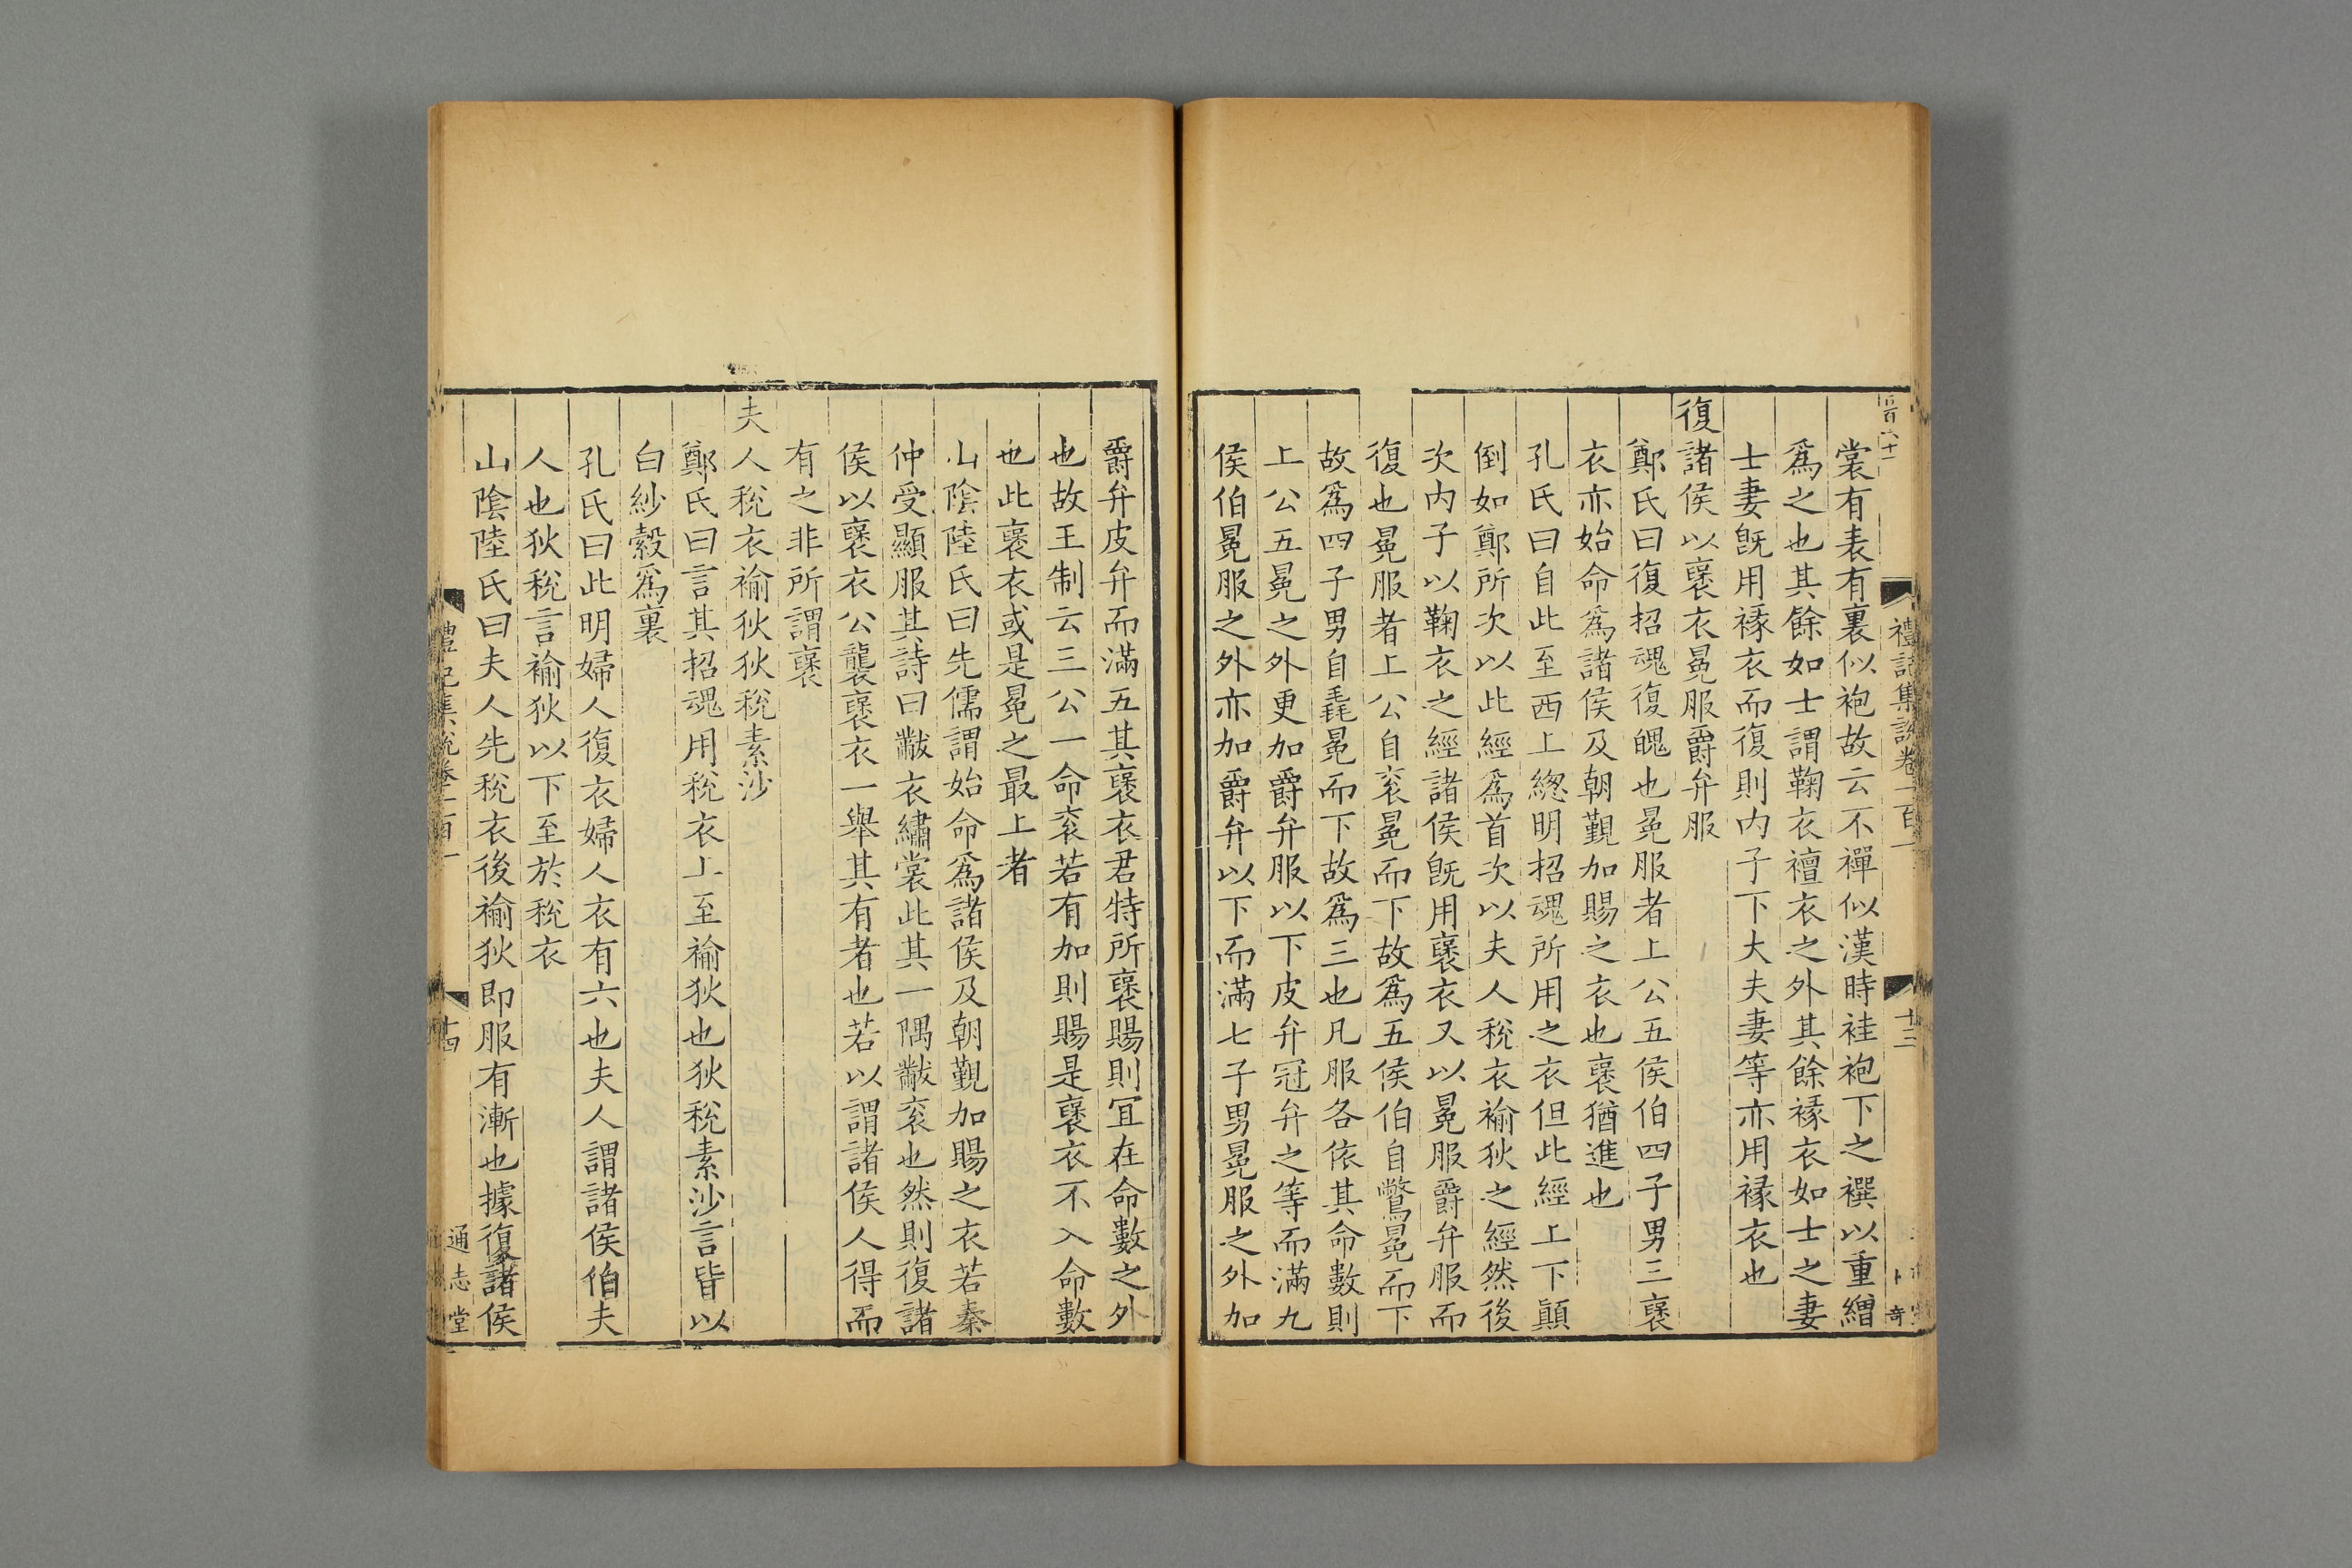 禮記集說卷一百一
十三
裳有表有裏似袍故云不襌似漢時袿袍下之襈以重繒
爲之也其餘如士謂鞠衣襢衣之外其餘褖衣如士之妻
士妻旣用褖衣而復則内子下大夫妻等亦用褖衣也
復諸侯以襃衣冕服爵弁服
鄭氏曰復招魂復魄也冕服者上公五侯伯四子男三襃
衣亦始命爲諸侯及朝覲加賜之衣也襃猶進也
孔氏曰自此至西上緫明招魂所用之衣但此經上下顚
倒如鄭所次以此經爲首次以夫人稅衣褕狄之經然後
次内子以鞠衣之經諸侯旣用襃衣又以冕服爵弁服而
復也冕服者上公自衮冕而下故爲五侯伯自鷩冕而下
故爲四子男自毳冕而下故爲三也凡服各依其命數則
上公五冕之外更加爵弁服以下皮弁冠弁之等而滿九
侯伯冕服之外亦加爵弁以下而滿七子男冕服之外加
爵弁皮弁而滿五其襃衣君特所襃賜則冝在命數之外
也故王制云三公一命衮若有加則賜是襃衣不入命數
也此襃衣或是冕之最上者
山隂陸氏曰先儒謂始命爲諸侯及朝覲加賜之衣若秦
仲受顯服其詩曰黻衣繡裳此其一隅黻衮也然則復諸
侯以襃衣公襲襃衣一舉其有者也若以謂諸侯人得而
有之非所謂襃
夫人稅衣褕狄狄稅素沙
鄭氏曰言其招魂用稅衣上至褕狄也狄稅素沙言皆以
白紗縠爲裏
孔氏曰此明婦人復衣婦人衣有六也夫人謂諸侯伯夫
人也狄稅言褕狄以下至於稅衣
山隂陸氏曰夫人先稅衣後褕狄即服有漸也據復諸侯
禮記集說卷一百一
十四
通志堂